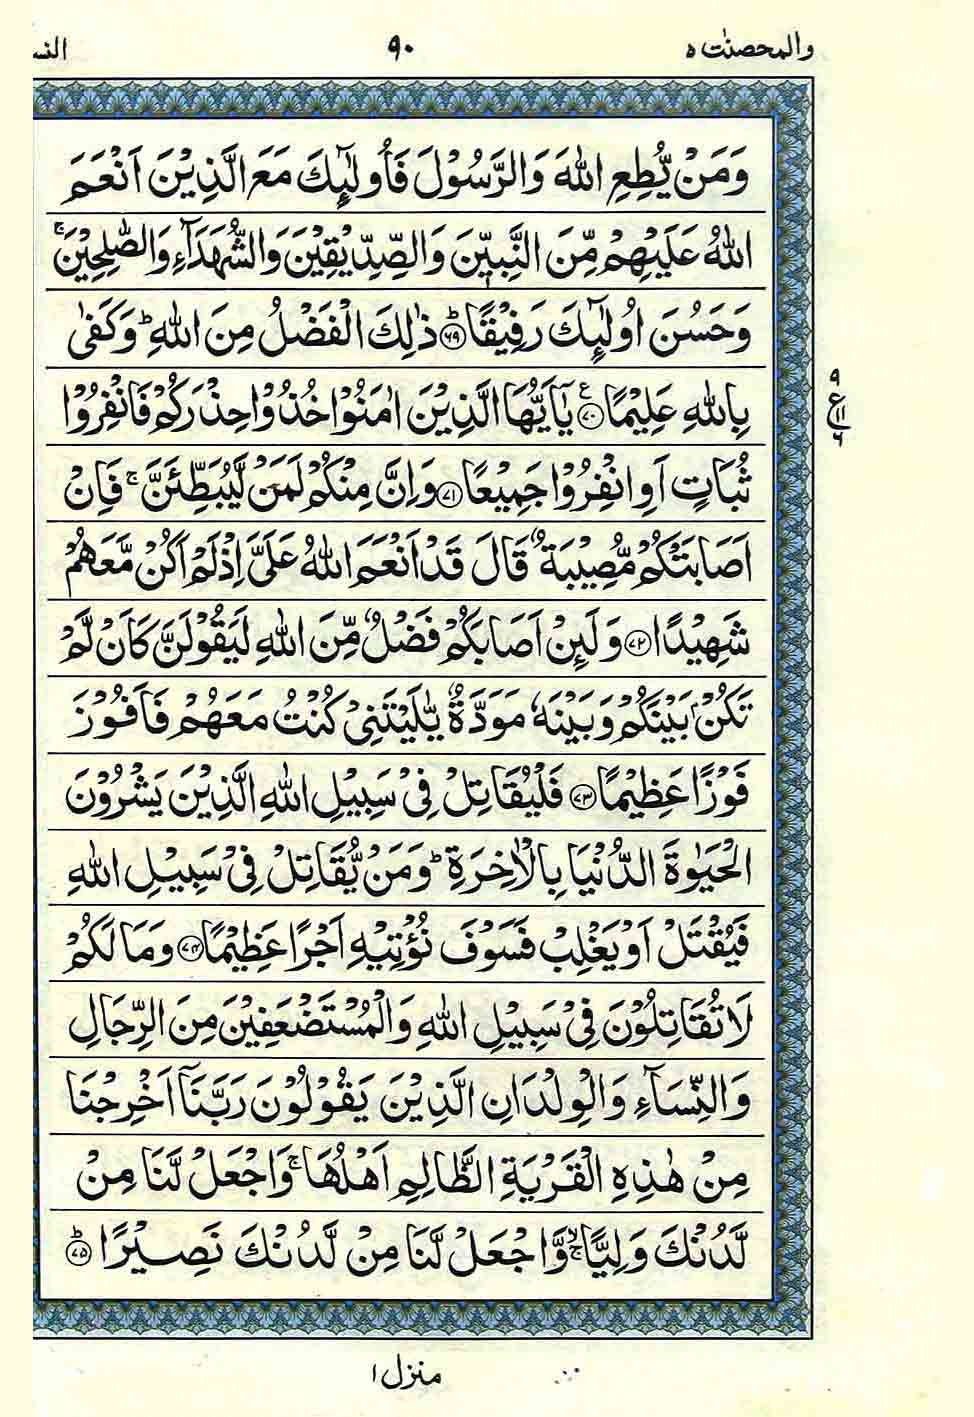 والمحصنٰت ٥ ٩٠ النس
وَمَنْ يُّطِعِ اللهَ وَالرَّسُوْلَ فَاُولٰٓئِكَ مَعَ الَّذِيْنَ اَنْعَمَ
اللهُ عَلَيْهِمْ مِّنَ النَّبِيّٖنَ وَالصِّدِّيْقِيْنَ وَالشُّهَدَآءِ وَالصّٰلِحِيْنَ ۚ
وَحَسُنَ اُولٰٓئِكَ رَفِيْقًا ؕ‏﴿٦٩﴾ ذٰلِكَ الْفَضْلُ مِنَ اللهِ ؕ وَكَفٰى
بِاللهِ عَلِيْمًا ﴿٧٠﴾ يٰٓاَيُّهَا الَّذِيْنَ اٰمَنُوْا خُذُوْا حِذْرَكُمْ فَانْفِرُوْا
٩
ع ١١
٦
ثُبَاتٍ اَوِ انْفِرُوْا جَمِيْعًا ﴿٧١﴾ وَاِنَّ مِنْكُمْ لَمَنْ لَّيُبَطِّئَنَّ ۚ فَاِنْ
اَصَابَتْكُمْ مُّصِيْبَةٌ قَالَ قَدْ اَنْعَمَ اللهُ عَلَيَّ اِذْ لَمْ اَكُنْ مَّعَهُمْ
شَهِيْدًا ﴿٧٢﴾ وَلَئِنْ اَصَابَكُمْ فَضْلٌ مِّنَ اللهِ لَيَقُوْلَنَّ كَاَنْ لَّمْ
تَكُنْۢ بَيْنَكُمْ وَبَيْنَهٗ مَوَدَّةٌ يّٰلَيْتَنِيْ كُنْتُ مَعَهُمْ فَاَفُوْزَ
فَوْزًا عَظِيْمًا ﴿٧٣﴾ فَلْيُقَاتِلْ فِيْ سَبِيْلِ اللهِ الَّذِيْنَ يَشْرُوْنَ
الْحَيٰوةَ الدُّنْيَا بِالْاٰخِرَةِ ؕ وَمَنْ يُّقَاتِلْ فِيْ سَبِيْلِ اللهِ
فَيُقْتَلْ اَوْ يَغْلِبْ فَسَوْفَ نُؤْتِيْهِ اَجْرًا عَظِيْمًا ﴿٧٤﴾ وَمَا لَكُمْ
لَا تُقَاتِلُوْنَ فِيْ سَبِيْلِ اللهِ وَالْمُسْتَضْعَفِيْنَ مِنَ الرِّجَالِ
وَالنِّسَآءِ وَالْوِلْدَانِ الَّذِيْنَ يَقُوْلُوْنَ رَبَّنَآ اَخْرِجْنَا
مِنْ هٰذِهِ الْقَرْيَةِ الظَّالِمِ اَهْلُهَا ۚ وَاجْعَلْ لَّنَا مِنْ
لَّدُنْكَ وَلِيًّا ۙۚ وَّاجْعَلْ لَّنَا مِنْ لَّدُنْكَ نَصِيْرًا ؕ﴿٧٥﴾
منزل ١